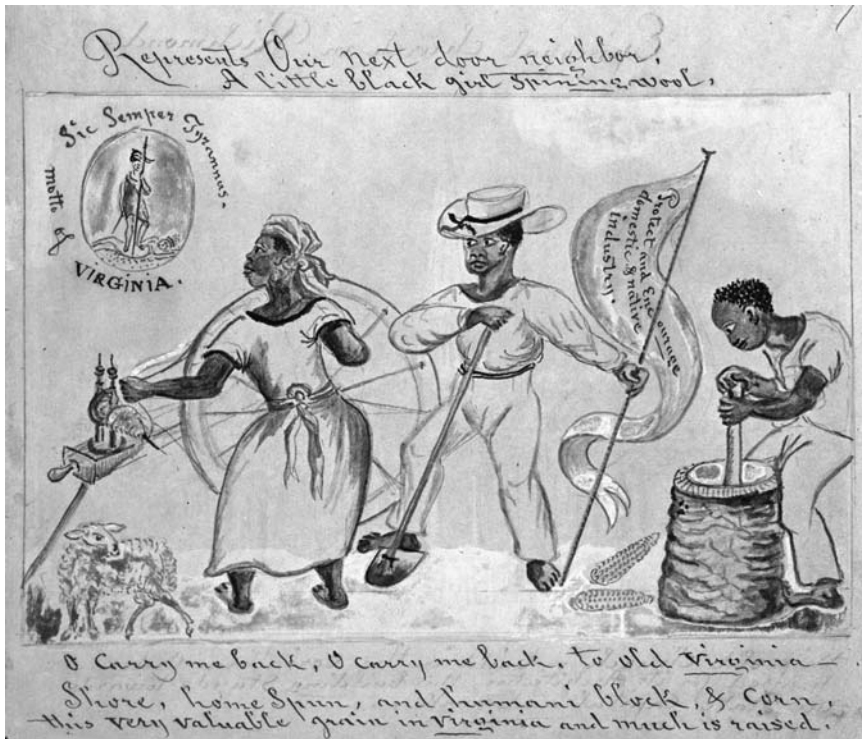 Represents Our next door neighbor,
A little black girl Spining wool,
Sic Semper Tyrannus.
motto of
VIRGINIA.
Protect and Encourage
domestic & native
Industry.
O Carry me back, O carry me back, to old Virginia —
Shore, home Spun, and humani block, & Corn,
this very valuable grain in Virginia and much is raised.